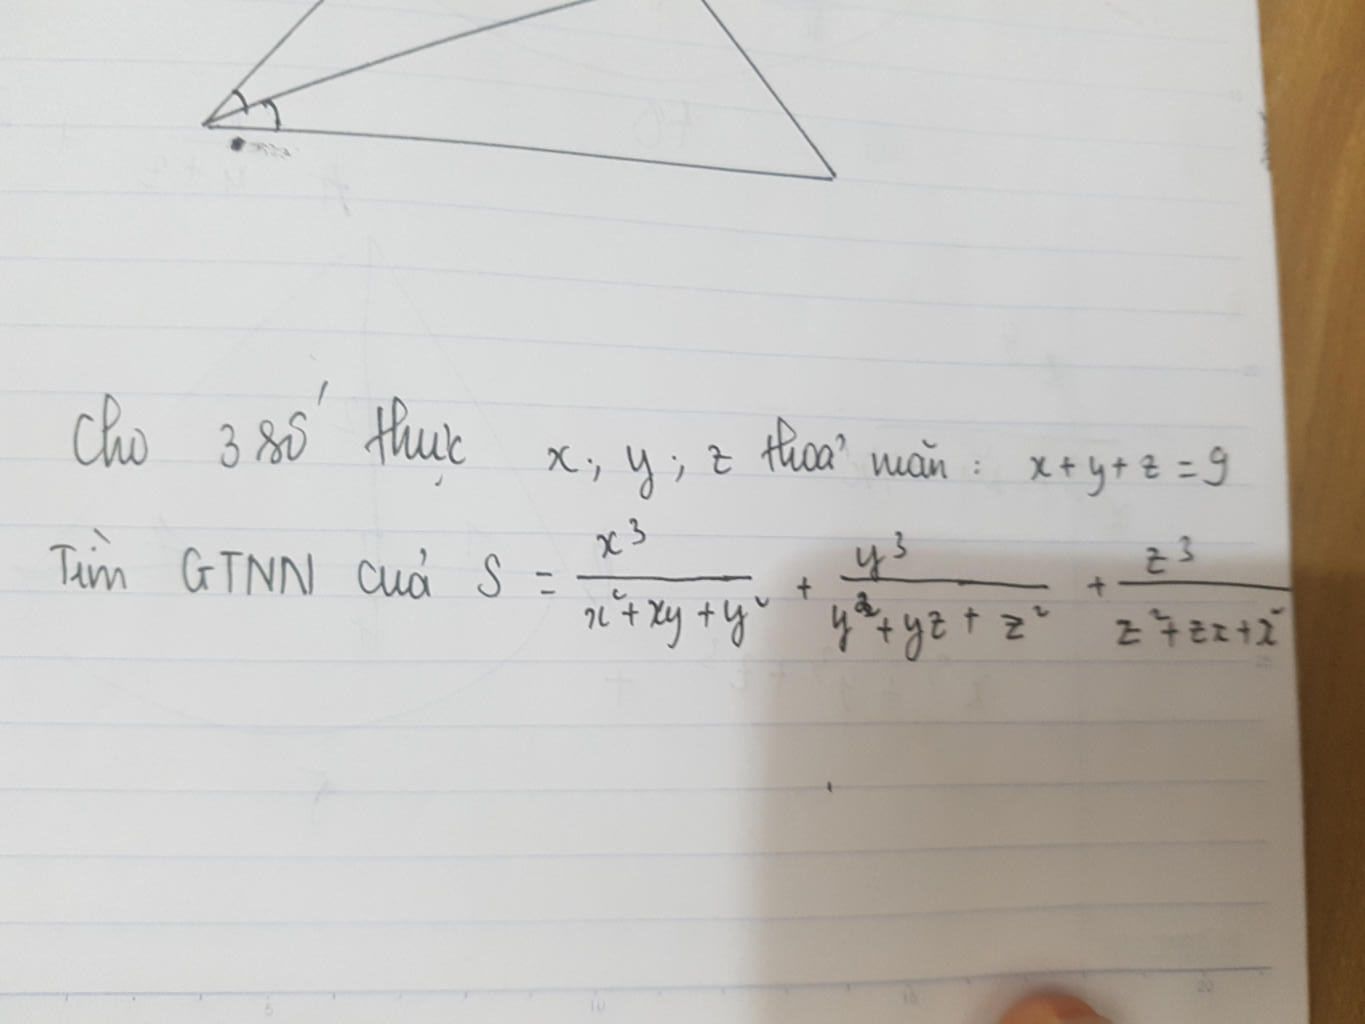 Cho 3 số thực x; y; z thoả mãn: x + y + z = 9
Tìm GTNN của S = x³/(x²+xy+y²) + y³/(y²+yz+z²) + z³/(z²+zx+x²)
5 10 15 20